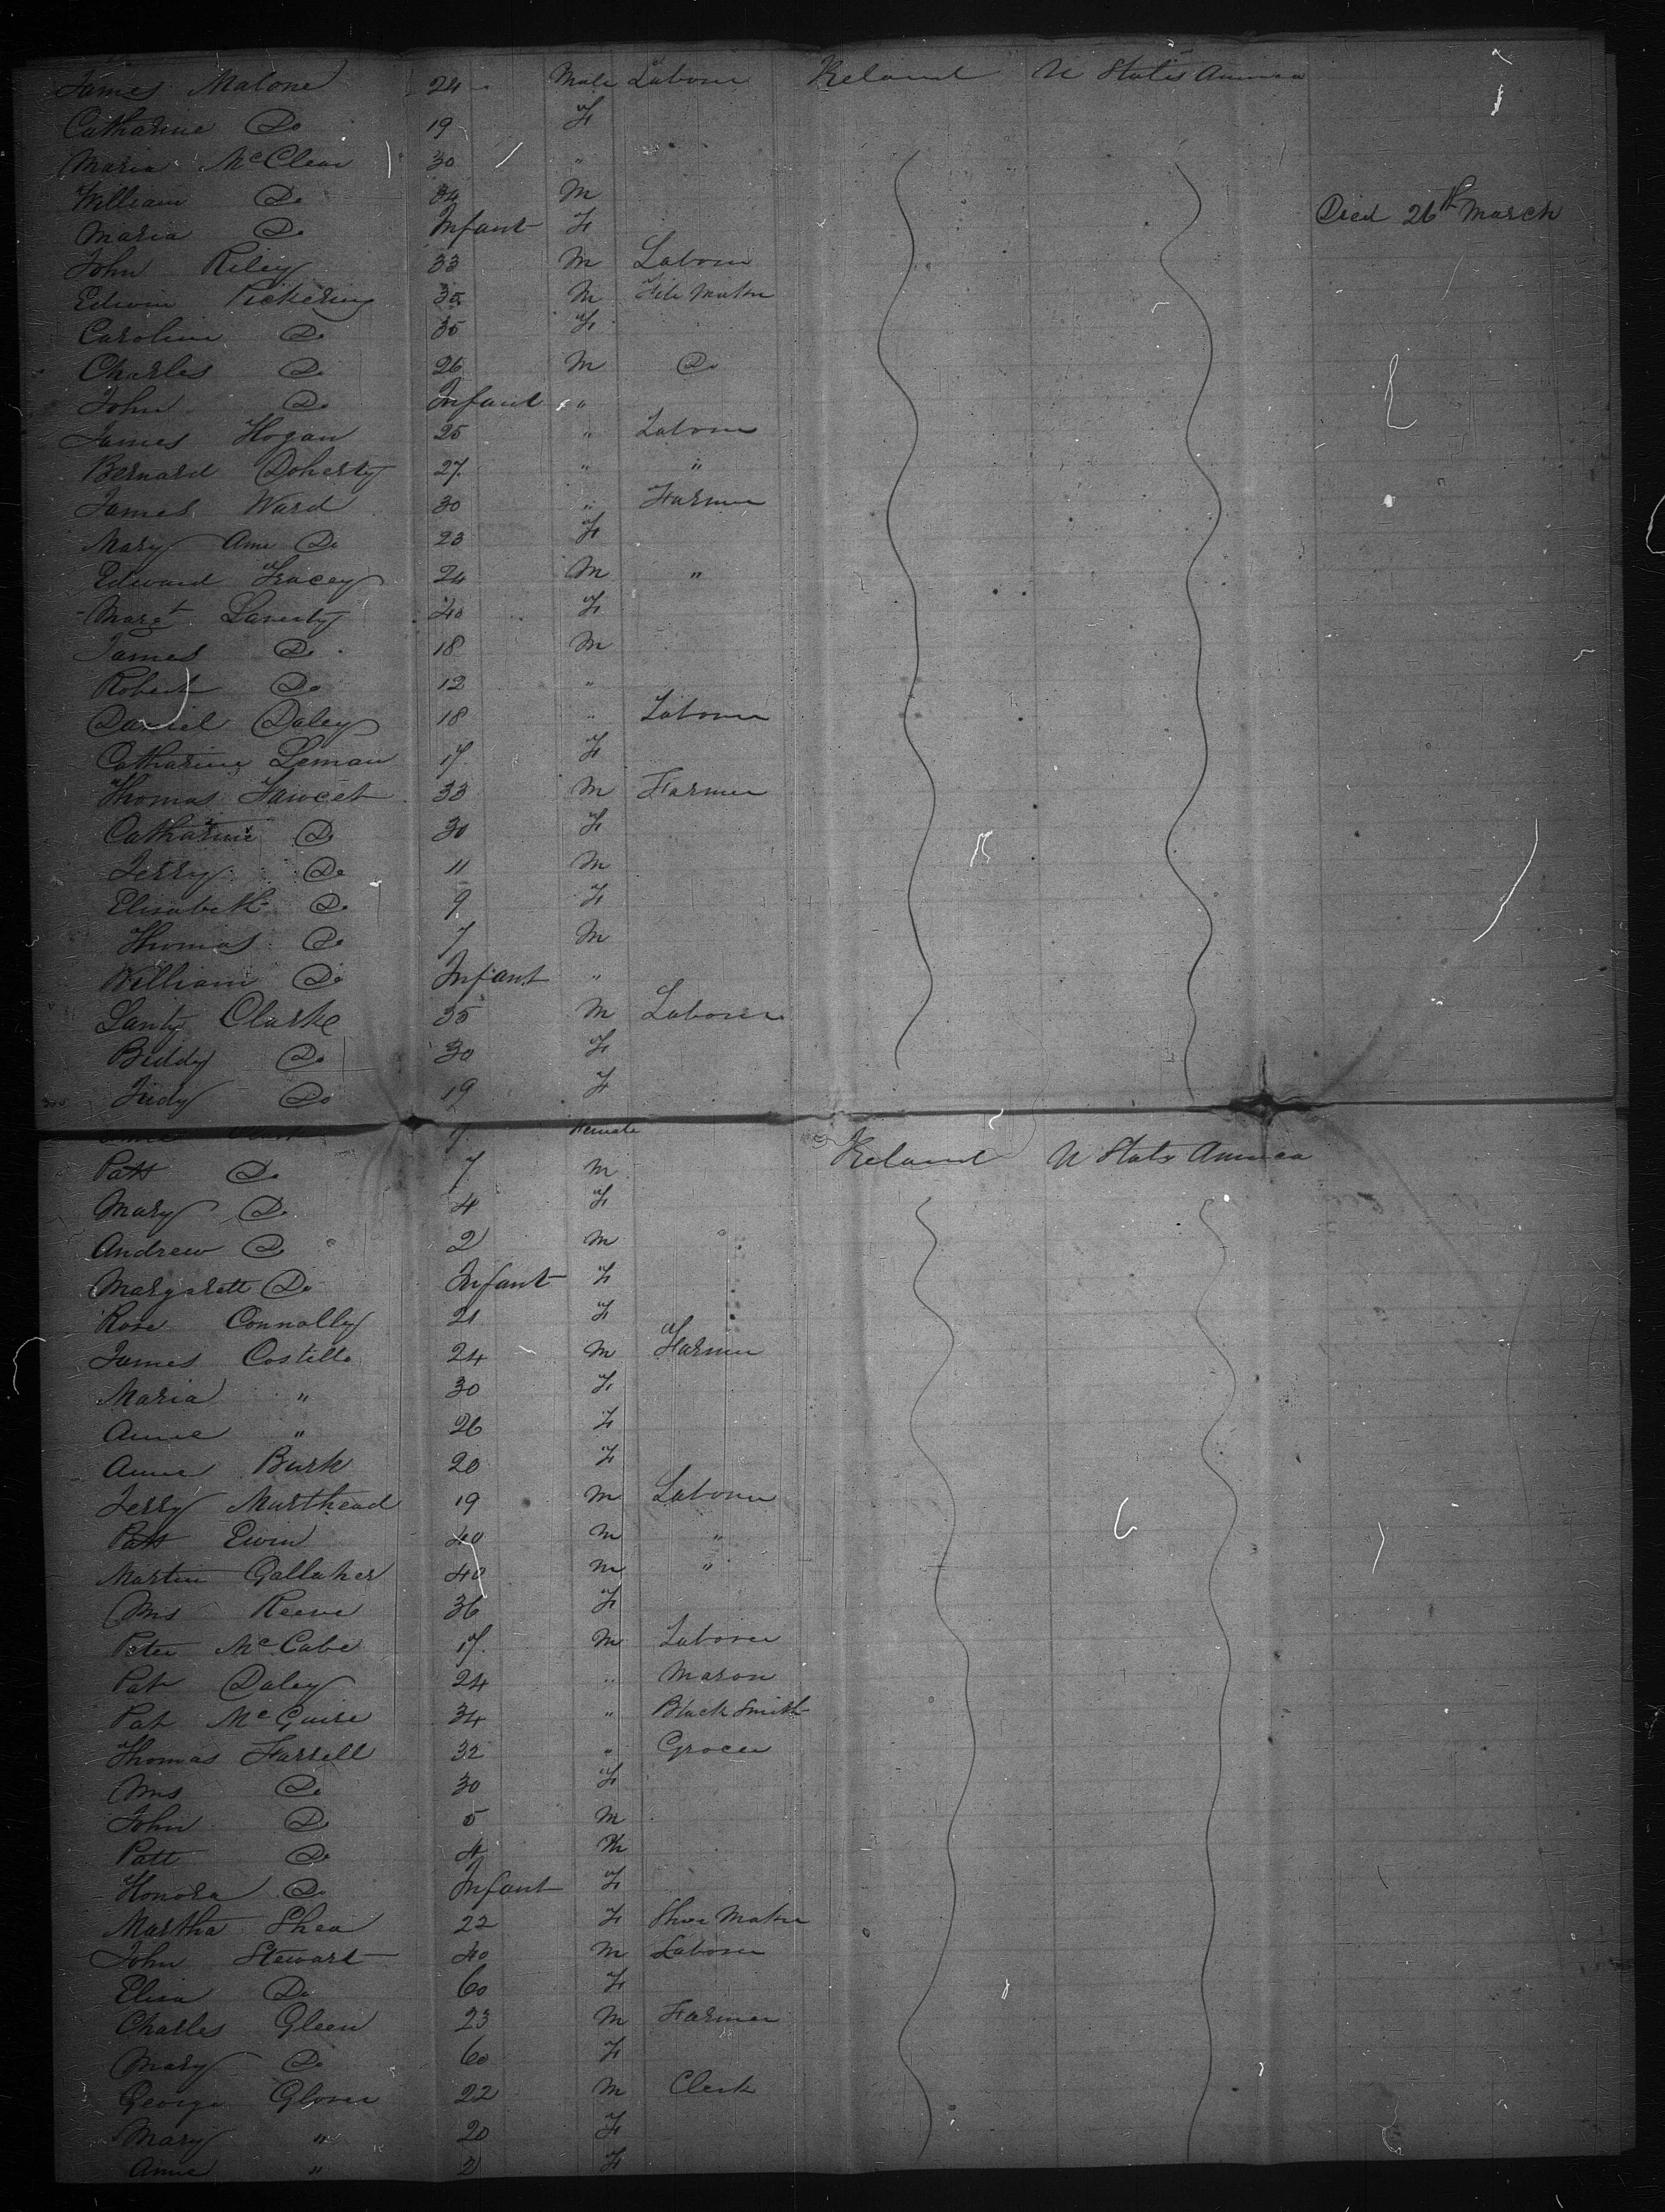 James Malone 24 Male Laborer Ireland U States America
Catharine Do 19 F
Maria McClean 30 "
William Do 34 M
Maria Do Infant F Died 26th March
John Riley 33 M Laborer
Edwin Pickering 35 M File Maker
Caroline Do 35 F
Charles Do 26 M Do
John Do Infant "
James Hogan 25 " Laborer
Bernard Doherty 27 " "
James Ward 30 " Farmer
Mary Ann Do 23 F
Edward Tracey 24 M "
Margt Laverty 40 F
James Do 18 M
Robert Do 12 "
Daniel Daley 18 " Laborer
Catharine Leman 17 F
Thomas Fawcet 33 M Farmer
Catharine Do 30 F
Jerry Do 11 M
Elisabeth Do 9 F
Thomas Do 7 M
William Do Infant "
Lanty Clarke 35 M Laborer
Biddy Do 30 F
Judy Do 19 F
9 Female Ireland U States America
Patt Do 7 M
Mary Do 4 F
Andrew Do 2 M
Margarett Do Infant F
Rose Connolly 21 F
James Costillo 24 M Farmer
Maria " 30 F
Anne " 26 F
Anne Burk 20 F
Jerry Murthead 19 M Laborer
Patt Ewin 40 M "
Martin Gallaher 40 M "
Mrs Reeve 36 F
Peter McCabe 17 M Laborer
Pat Daley 24 " Mason
Pat McGuire 34 " Black Smith
Thomas Farrell 32 " Grocer
Mrs Do 30 F
John Do 5 M
Patt Do 4 M
Honora Do Infant F
Martha Shea 22 F Shoe Maker
John Stewart 40 M Laborer
Eliza Do 60 F
Charles Gleen 23 M Farmer
Mary Do 60 F
George Glover 22 M Clerk
Mary " 20 F
Anne " 2 F